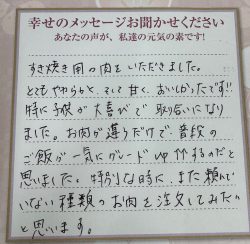 幸せのメッセージお聞かせください
あなたの声が、私達の元気の素です!
すき焼き用の肉をいただきました。
とてもやらかく、そして甘く、おいしかったです!!
特に子供が大喜びで取り合いになり
ました。お肉が違うだけで普段の
ご飯が一気にグレードup⇈するのだと
思いました。特別な時に、また頼んで
いない種類のお肉を注文してみたい
と思います。